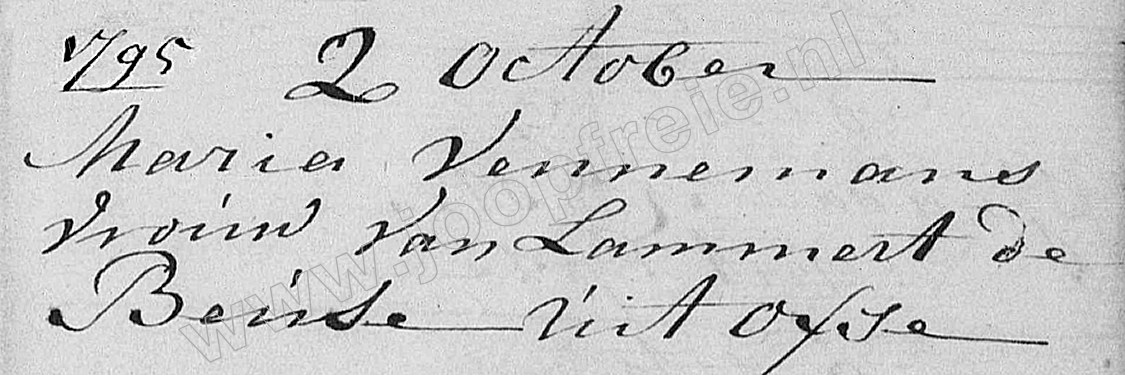 1795 2 October
Maria Vennemans
Vrouw Van Lammert de
Beúse úit Oxse
www.joopfreie.nl